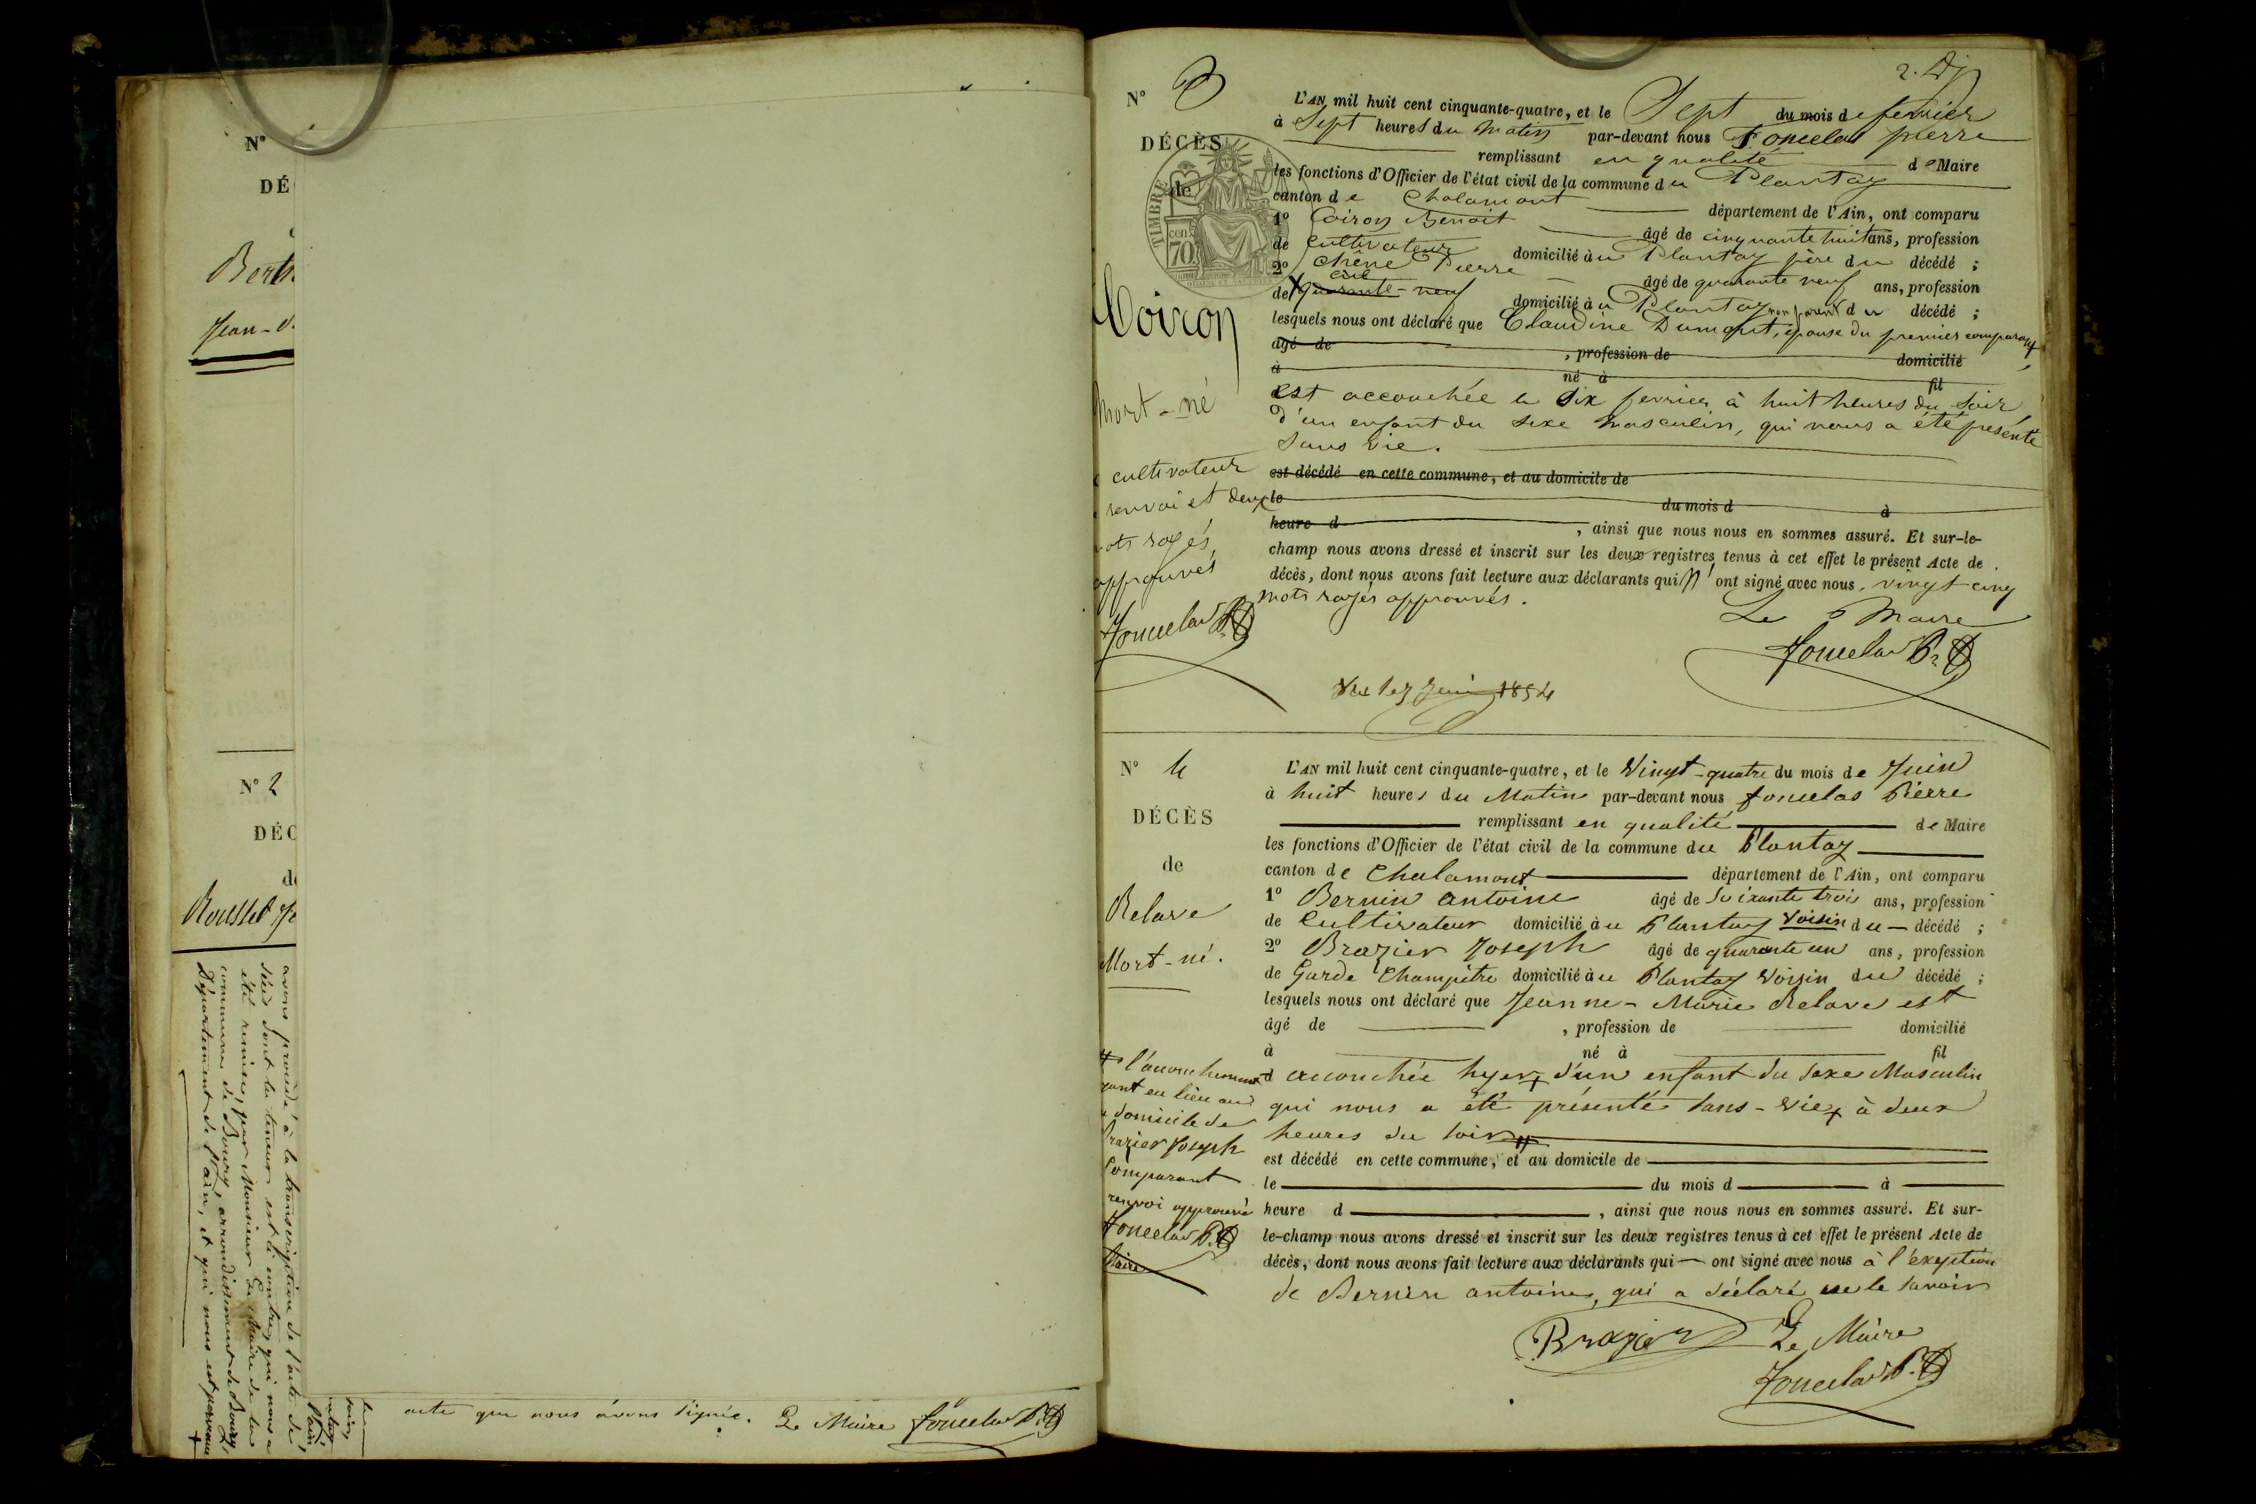 N°
DÉ
Berth
Jean-
N° 2
DÉC
de
Rousset
avons procédé à la transcription de l'acte de
dont la teneur est ci contre, qui nous a
été remise, par Monsieur Le Maire de la
commune de Bourg, arrondissement de Bourg
Département de l'ain, et qui nous est parvenu
acte que nous avons signé. Le Maire fouuelas P.
2.
N° 3
DÉCÈS
de
TIMBRE
cen
70
Coiron
mort-né
cultivateur
renvoi et deux
mots rayés,
approuvés
L'AN mil huit cent cinquante-quatre, et le Sept du mois de fevrier
à Sept heures du Matin par-devant nous Foncelas pierre
remplissant en qualité de Maire
les fonctions d'Officier de l'état civil de la commune du Plantay
canton de Chalamont département de l'Ain, ont comparu
1° Coiron Benoit âgé de cinquante huit ans, profession
de Cultivateur domicilié au Plantay père du décédé ;
2° Chêne Pierre âgé de quarante neuf ans, profession
de quarante-neuf domicilié au Plantay non parent du décédé ;
lesquels nous ont déclaré que Claudine Dumont, épouse du premier comparant
âgé de , profession de domicilié
à né à fil
est accouchée le Six fevrier à huit heures du Soir
d'un enfant du sexe masculin, qui nous a été présenté
Sans vie.
est décédé en cette commune, et au domicile de
le du mois d à
heure d , ainsi que nous nous en sommes assuré. Et sur-le-
champ nous avons dressé et inscrit sur les deux registres tenus à cet effet le présent Acte de
décès, dont nous avons fait lecture aux déclarants qui n'ont signé avec nous. vingt cinq
mots rayés approuvés.
Le Maire
Foncelas P.
Foncelas P.
Vu le 7 Juin 1854
N° 4
DÉCÈS
de
Relave
Mort-né.
L'AN mil huit cent cinquante-quatre, et le Vingt-quatre du mois de Juin
à huit heures du Matin par-devant nous foncelas Pierre
remplissant en qualité de Maire
les fonctions d'Officier de l'état civil de la commune du Plantay
canton de Chalamont département de l'Ain, ont comparu
1° Bernin antoine âgé de Soixante trois ans, profession
de Cultivateur domicilié au Plantay Voisin du décédé ;
2° Brazier Joseph âgé de quarante un ans, profession
de Garde Champêtre domicilié au Plantay Voisin du décédé ;
lesquels nous ont déclaré que Jeanne-Marie Relave est
âgé de , profession de domicilié
à né à fil
d accouchée hyer + d'un enfant du Sexe Masculin
qui nous a été présenté Sans-Vie + à deux
heures du Soir #
est décédé en cette commune, et au domicile de
le du mois d à
heure d , ainsi que nous nous en sommes assuré. Et sur-
le-champ nous avons dressé et inscrit sur les deux registres tenus à cet effet le présent Acte de
décès, dont nous avons fait lecture aux déclarants qui ont signé avec nous à l'exeption
de Bernin antoine, qui a déclaré ne le Savoir
# l'accouchement
yant eu lieu au
domicile de
Brazier Joseph
Comparant
renvoi approuvé
Foncelas P.
Maire
Brazier Le Maire
Foncelas P.